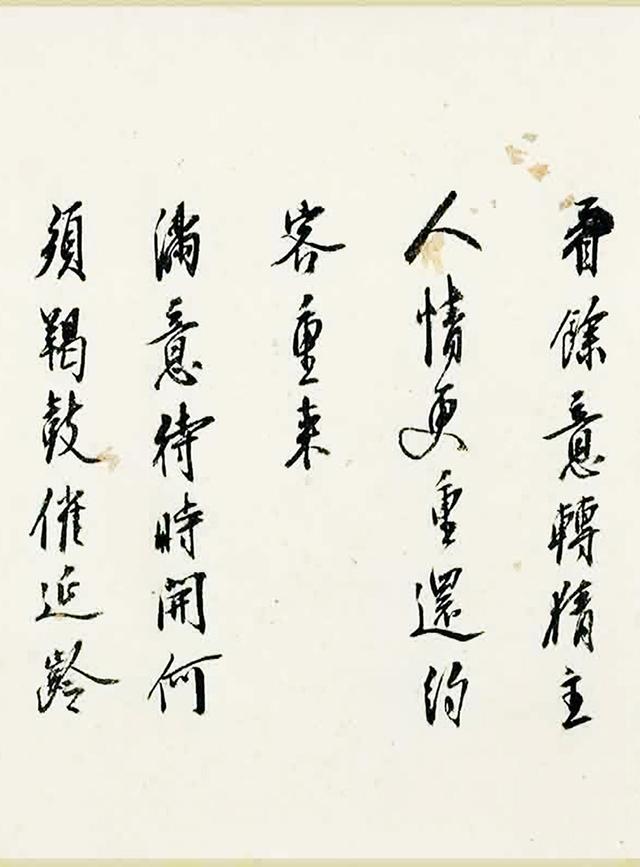 看餘意轉猜主
人情更重還約
客重来
滿意待時開何
須羯鼓催延齡